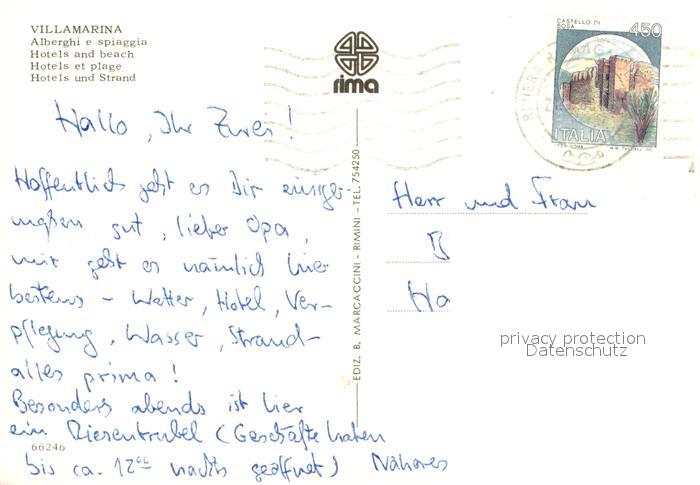 VILLAMARINA
Alberghi e spiaggia
Hotels and beach
Hotels et plage
Hotels und Strand
rima
CASTELLO DI
ROSA
450
ITALIA
Hallo, Ihr Zwei!
Hoffentlich geht es Dir einiger-
maßen gut, lieber Opa,
mir geht es nämlich hier
bestens - Wetter, Hotel, Ver-
pflegung, Wasser, Strand -
alles prima!
Besonders abends ist hier
ein Riesentrubel (Geschäfte haben
bis ca. 12⁰⁰ nachts geöffnet) Näheres
66246
EDIZ. B. MARCACCINI - RIMINI - TEL. 754250
Herr und Frau
B
Ha
privacy protection
Datenschutz